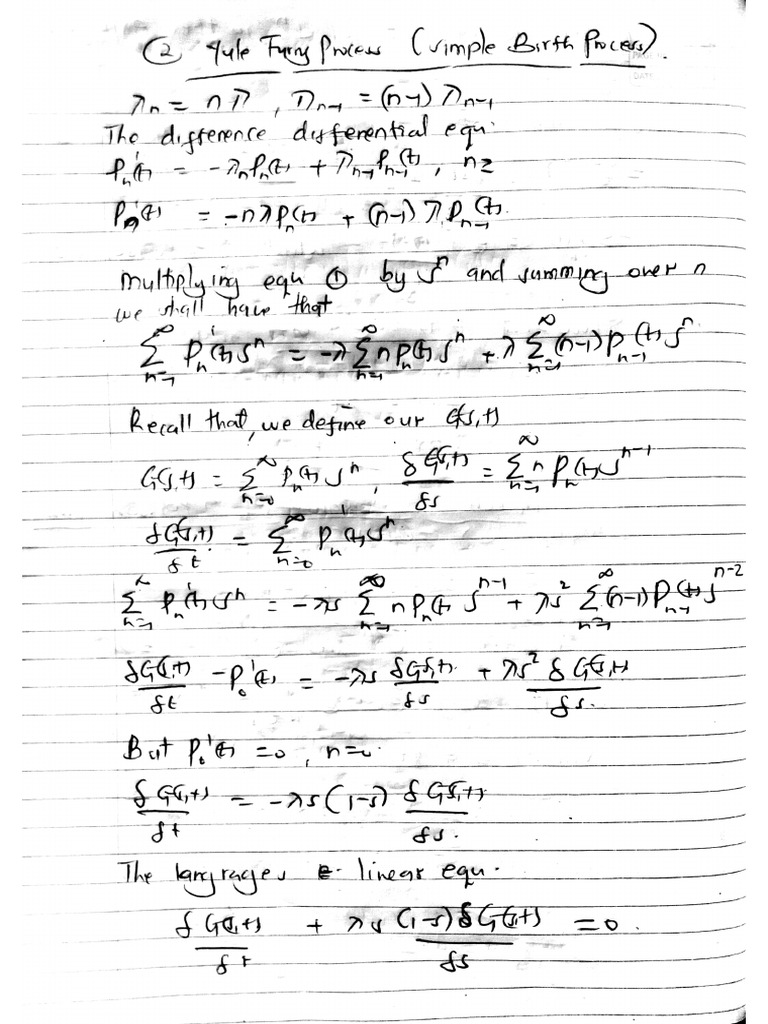 ② Yule Furry Process (Simple Birth Process).
λn = nλ , λn-1 = (n-1) λn-1
The difference differential equ.
Pn'(t) = -λnPn(t) + λn-1Pn-1(t) , n≥
Pn'(t) = -nλPn(t) + (n-1)λPn-1(t).
Multiplying equ ① by s^n and summing over n
we shall have that
∑_{n=1}^∞ Pn'(t)s^n = -λ∑_{n=1}^∞ nPn(t)s^n + λ∑_{n=1}^∞ (n-1)Pn-1(t)s^n
Recall that, we define our G(s,t)
G(s,t) = ∑_{n=0}^∞ Pn(t)s^n , δG(s,t)/δs = ∑_{n=1}^∞ nPn(t)s^{n-1}
δG(s,t)/δt = ∑_{n=0}^∞ Pn'(t)s^n
∑_{n=1}^∞ Pn'(t)s^n = -λs ∑_{n=1}^∞ nPn(t)s^{n-1} + λs² ∑_{n=1}^∞ (n-1)Pn-1(t)s^{n-2}
δG(s,t)/δt - P0'(t) = -λs δG(s,t)/δs + λs² δG(s,t)/δs.
But P0'(t) = 0 , n=0.
δG(s,t)/δt = -λs(1-s) δG(s,t)/δs.
The langrages linear equ.
δG(s,t)/δt + λs(1-s)δG(s,t)/δs = 0.